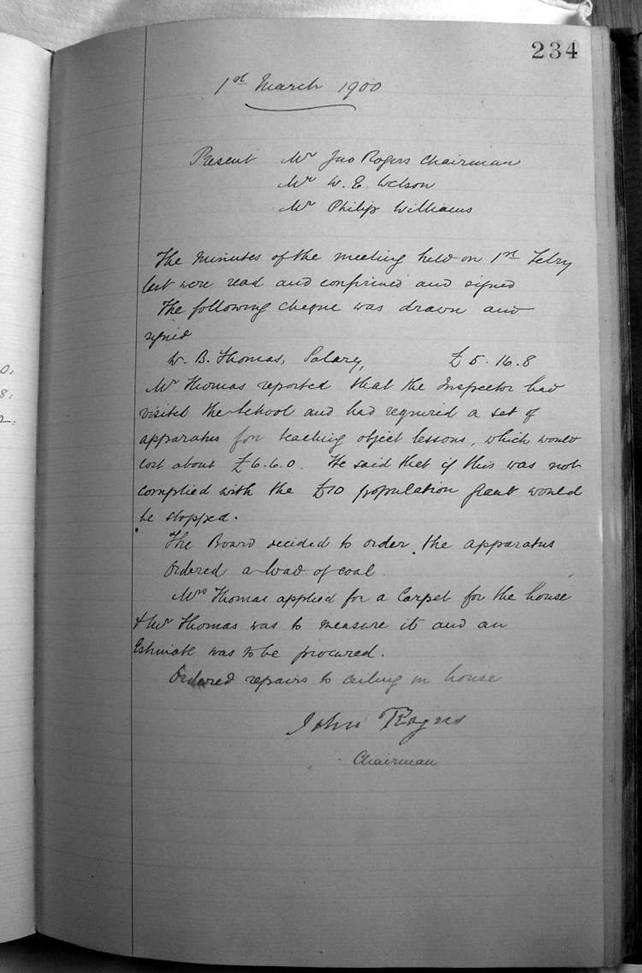 234
1st March 1900
Present Mr Jno Rogers Chairman
Mr W. E. Welson
Mr Philip Williams
The Minutes of the meeting held on 1st Febry
last were read and confirmed and signed
The following cheque was drawn and
signed
W. B. Thomas, Salary, £5.16.8
Mr Thomas reported that the Inspector had
visited the School and had required a set of
apparatus for teaching object lessons, which would
cost about £6.6.0. He said that if this was not
complied with the £10 population grant would
be stopped.
The Board decided to order the apparatus
Ordered a load of coal
Mrs Thomas applied for a Carpet for the house
& Mr Thomas was to measure it and an
Estimate was to be procured.
Ordered repairs to ceiling in house
John Rogers
Chairman